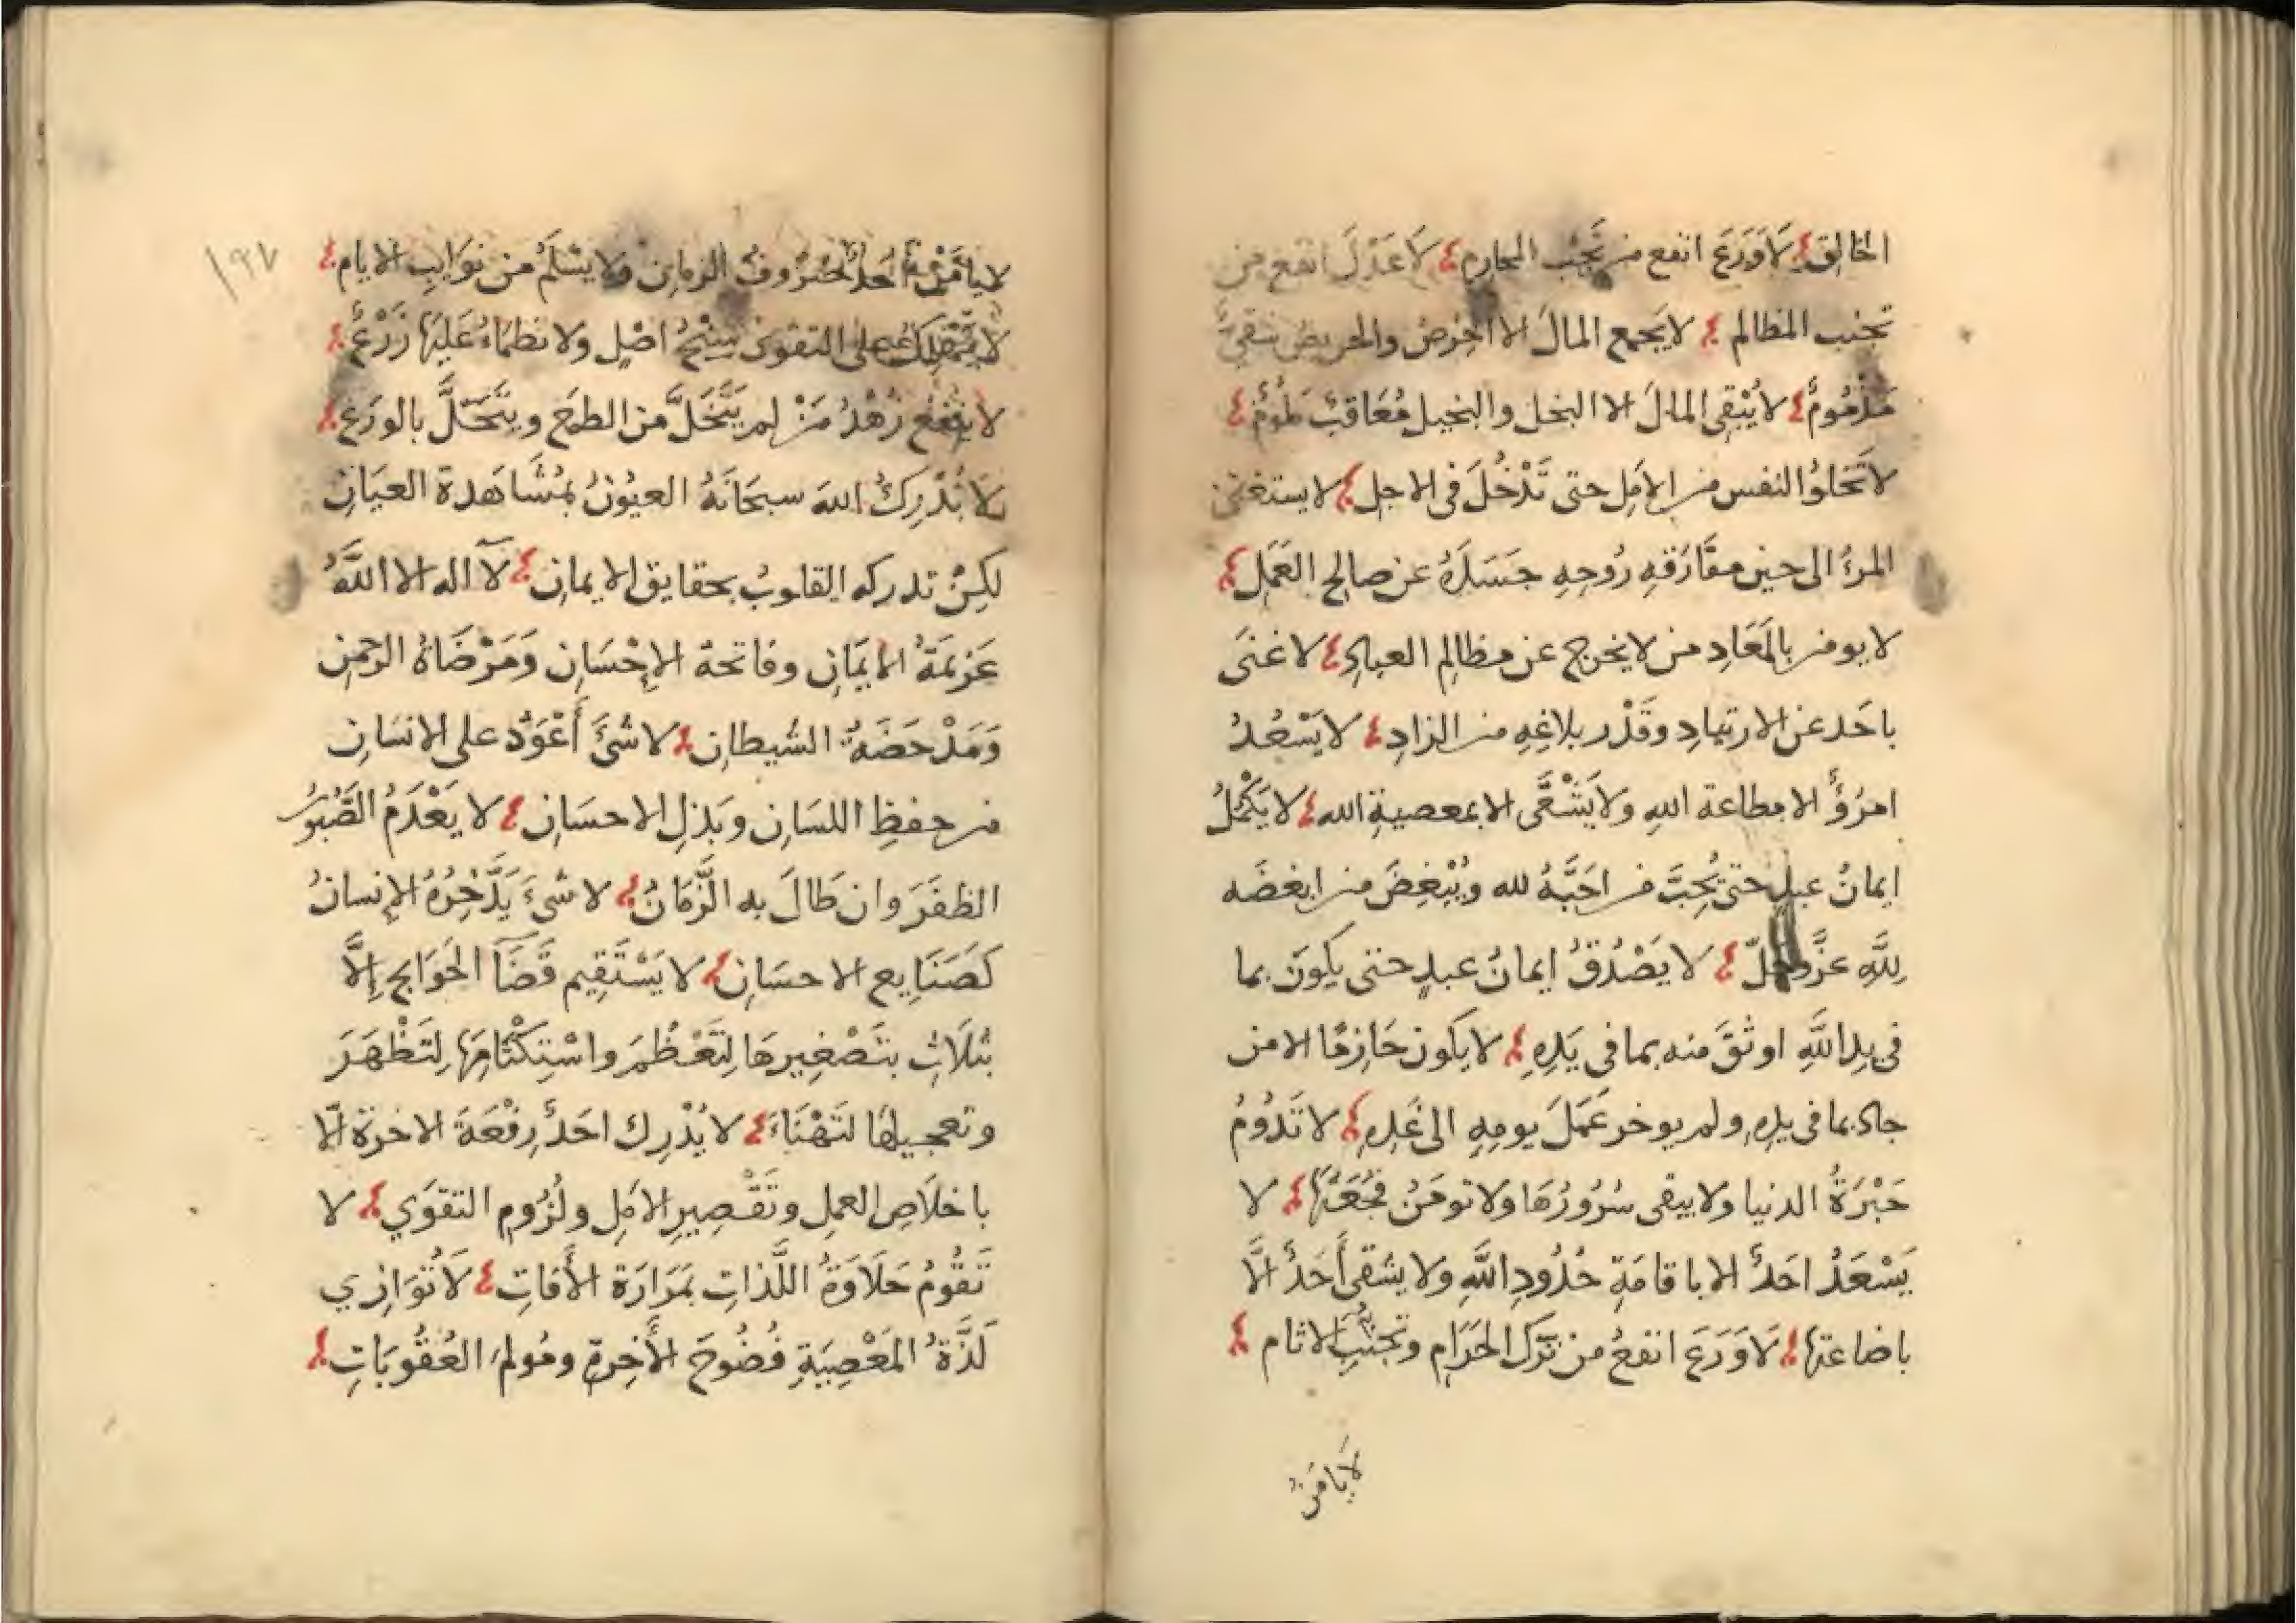 الخالق لَا وَرَعَ انفع من تجنب المحارم لَا عَدْلَ انفع من
تجنب المظالم لا يَجمع المالَ الا الحرصُ والحريصُ شقيٌّ
مَذْمُومٌ لا يُبْقِى المالَ الا البخل والبخيل مُعَاقبٌ مَلُومٌ
لا تَخلوُا النفس من الامَلِ حتى تَدْخُلَ فى الاجل لا يستغنى
المرءُ الى حين مفَارَقهِ رُوحِهِ جَسَدَهُ عن صالِح العَمَلِ
لا يومن بالمَعَادِ من لا يخرج عن مظالِم العبادِ لا غنَى
باحَد عن الارتيادِ وقَدْر بلاغِهِ من الزادِ لا يَسْعُدُ
امرُؤٌ الا بطاعة اللهِ ولا يَشْقَى الا بمعصيةِ الله لا يَكْمُلُ
ايمانُ عبدٍ حتى يُحِبَّ من احَبَّهُ لله ويُبْغِضَ من ابغضَه
لِلَّهِ عزَّ وجلّ لا يَصْدُقُ ايمانُ عبدٍ حتى يكونَ بما
في يدِ اللَّهِ اوثقَ منه بما في يَدِهِ لا يكون حَازِمًا الا من
جاد بما في يدِهِ ولم يوخر عَمَلَ يومِهِ الى غَدِهِ لا تَدُومُ
حَبْرَةُ الدنيا ولا يبقى سُرُورُهَا ولا تومَنُ فجْعَتُهَا لا
يَسْعَدُ احَدٌ الا باقامَةِ حُدُودِ اللَّهِ ولا يشقى أحَدٌ الَّا
باضاعتها لَا وَرَعَ انفعُ من تَرْكِ الحَرَامِ وتجنّبِ الاثام
لا يامَنُ
١٩٧
لا يامَنُ احدٌ صُرُوفَ الزمانِ ولا يسْلَمُ من نوَايبِ الايام
لا يَهْلِكُ على التقوى سِنْخُ اصْلٍ ولا تظمَاءُ عَلَيهَا زَرْعٌ
لا ينفع زُهْدُ مَنْ لم يَتَخَلَّ من الطمَع ويتَحَلَّ بالورَعِ
لَا تُدْرِكُ اللهَ سبحَانَهُ العيوُنُ بمُشَاهَدة العيَانِ
لكِنْ تدركه القلوبُ بحقايق الايمانِ لآ اله الا اللَّهُ
عَزيمَةُ الايمَانِ وفاتحة الإحْسَانِ وَمَرْضَاةُ الرحمنِ
وَمَدْحَضَةُ الشيطانِ لا شْئَ أَعْوَدُ على الانسَانِ
من حفظِ اللسَانِ وبَذلِ الاحسَانِ لا يَعْدَمُ الصَّبُورُ
الظفَرَ وان طَالَ به الزَّمَانُ لا شئَ يَدَّخِرُهُ الإنسانُ
كَصَنَايِع الاحسَانِ لا يَسْتَقِيم قَضَآ الحَوَايج إلَّا
بثلَاثٍ بتَصْغِيرِهَا لِتَعْظُمَ واسْتِكْتَامِهَا لِتَظْهَرَ
وتعجيلهَا لتَهْنَاءَ لا يُدْرِك احَدٌ رِفْعَةَ الاخرَة الَّا
باخلَاصِ العملِ وتَقْصِيرِ الامَلِ ولُزُومِ التقوَي لا
تَقُومُ حَلَاوَةُ اللَّذاتِ بمَرَارَة الأَفاتِ لَا تُوَازِي
لَذَّةُ المَعْصِيَةِ فُضُوحَ الأَخِرةِ ومُولمَ العُقُوبَاتِ